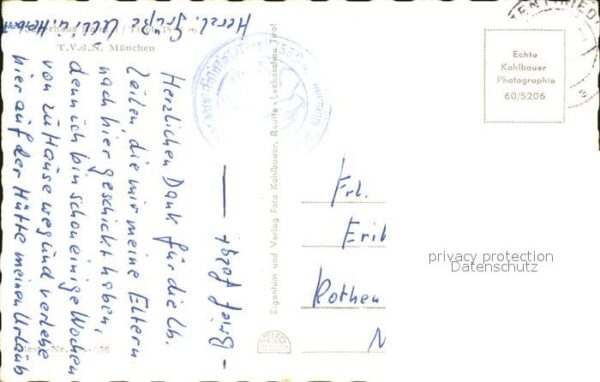 Herzl. Grüße
T.V.d.N. München
Herzlichen Dank für die lb.
Zeilen die mir meine Eltern
nach hier geschickt haben,
denn ich bin schon einige Wochen
von zu Hause weg und verlebe
hier auf der Hütte meinen Urlaub
— Brief folgt. —
Eigentum und Verlag Foto Kohlbauer, Reutte - Lechaschau Tirol
Echte
Kohlbauer
Photographie
60/5206
Frl.
Rothen
N
privacy protection
Datenschutz